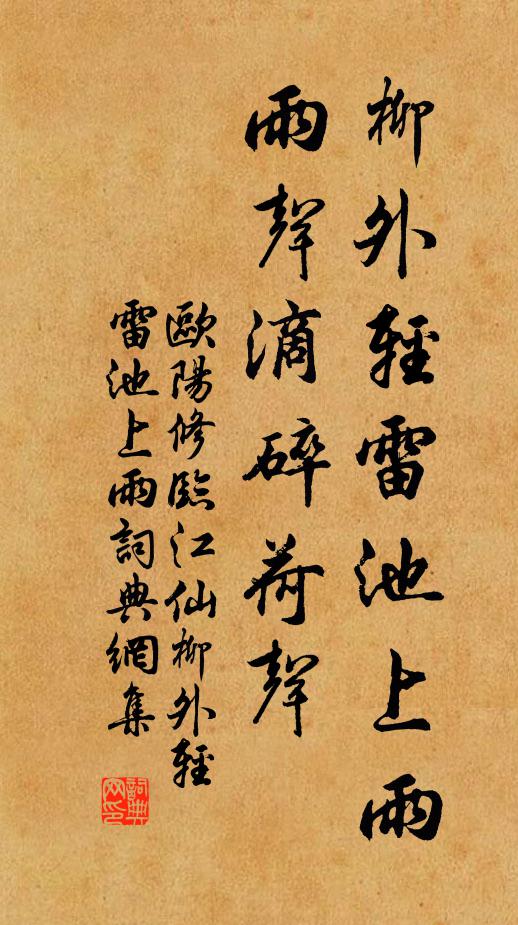 柳外輕雷池上雨
雨聲滴碎荷聲
歐陽修臨江仙柳外輕
雷池上雨詞典網集
詞典
网印